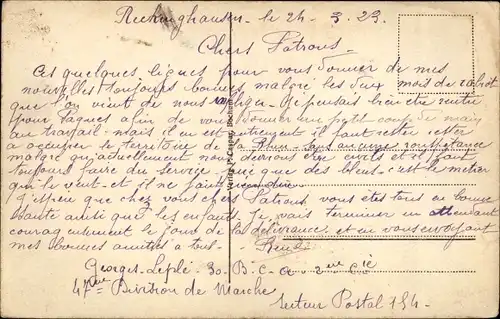 Recklinghausen - le 24 - 3. 23.
Chers Patrons -
Ces quelques lignes pour vous donner de mes
nouvelles toujours bonnes malgré les deux mois de rabiot
que l'on vient de nous infliger. Je pensais bien être rentré
pour Paques afin de vous donner un petit coup de main
au travail - mais il en est autrement il faut rester
a occuper le territoire de la Rhur - sans aucune rouspétance
malgré qu'actuellement nous devrions être civils et il faut
toujours faire du service que des bleus - c'est le metier
qui le veut - et il ne faut
J'espère que chez vous chers Patrons vous êtes tous en bonne
santé ainsi que les enfants - Je vais terminer en attendant
courageusement le jour de la délivrance - et en vous envoyant
mes bonnes amitiés a tous -
Georges Leplé - 30. B. C. A - 2eme Cie
47me Division de Marche
Secteur Postal 154 -
Verlag P. Caspar,